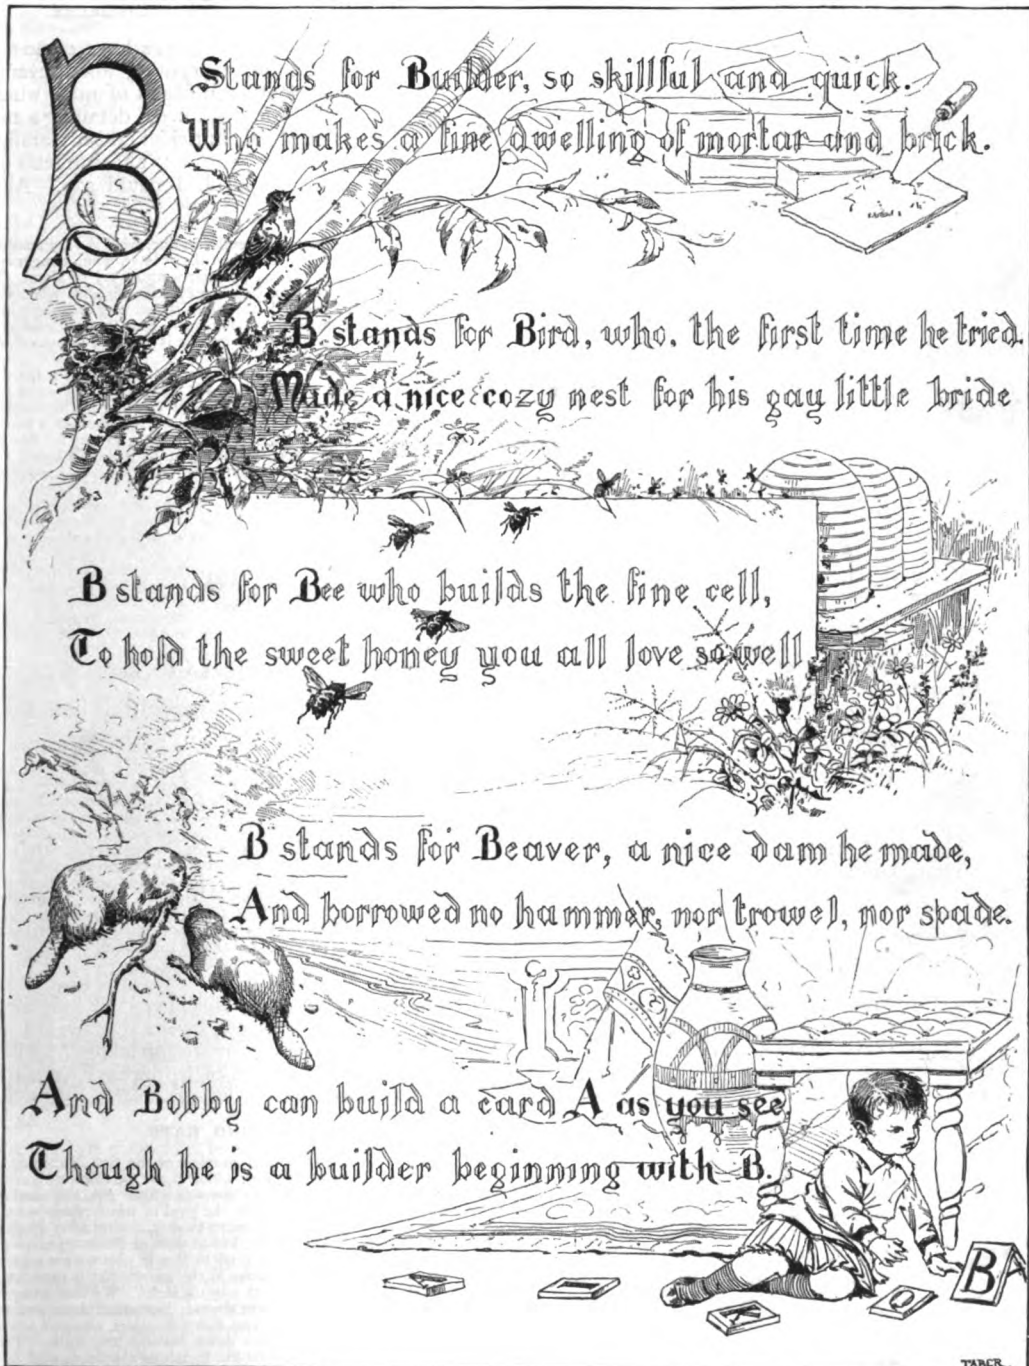 B Stands for Builder, so skillful and quick.
Who makes a fine dwelling of mortar and brick.
B stands for Bird, who, the first time he tried.
Made a nice cozy nest for his gay little bride
B stands for Bee who builds the fine cell,
To hold the sweet honey you all love so well
B stands for Beaver, a nice dam he made,
And borrowed no hammer, nor trowel, nor spade.
And Bobby can build a card A as you see,
Though he is a builder beginning with B.
B
K
O
TABER